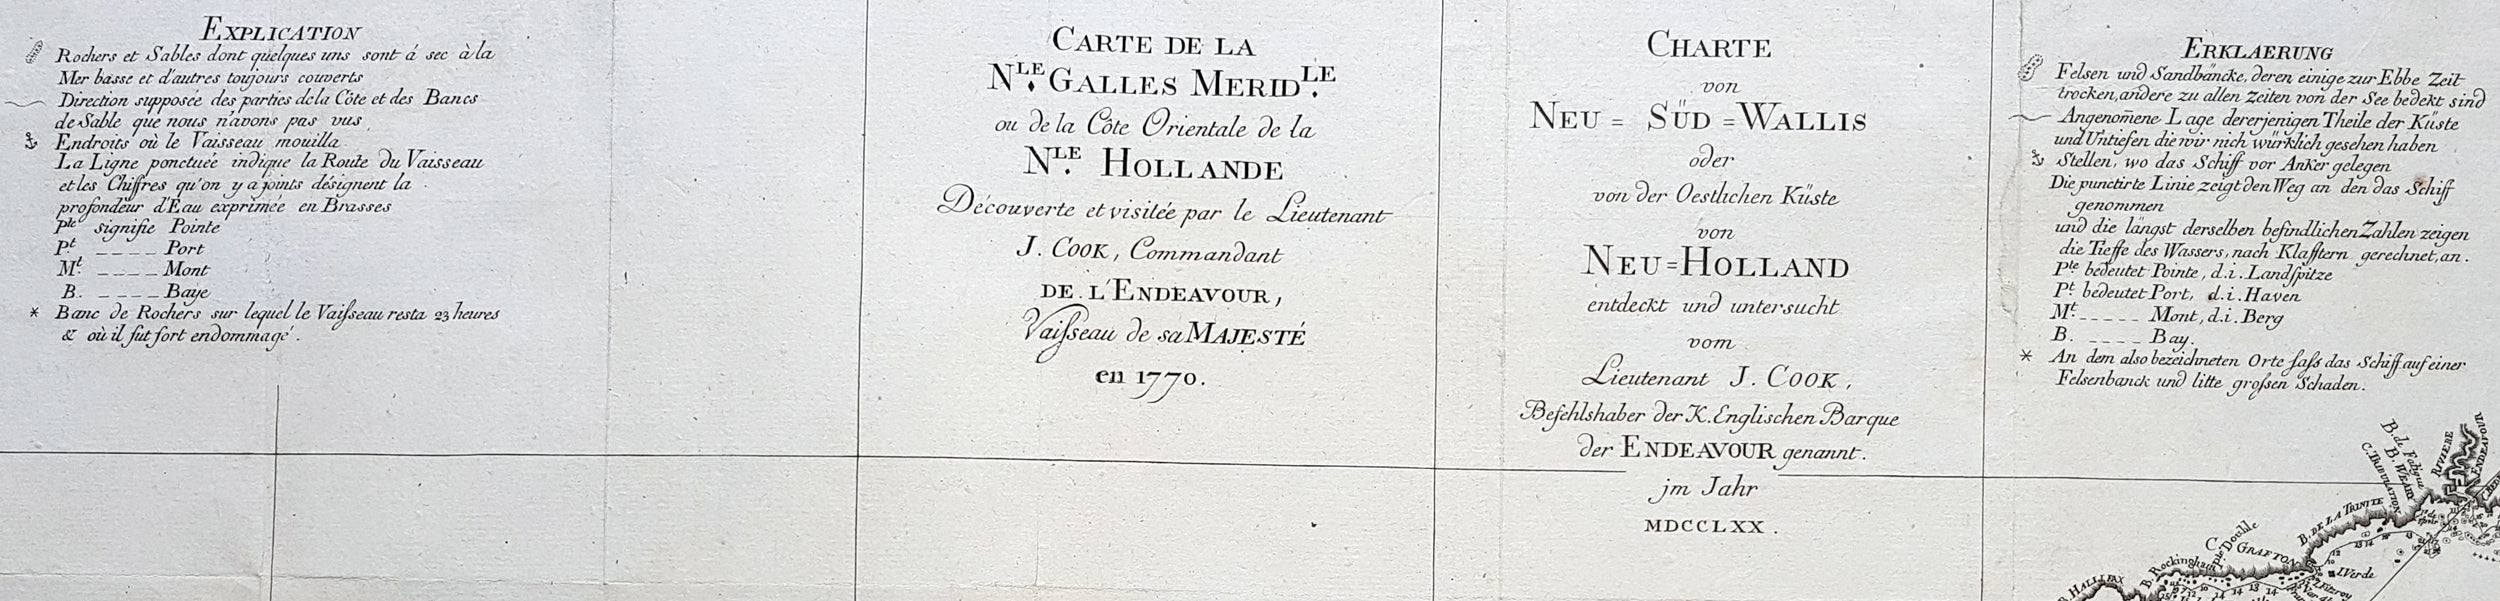 EXPLICATION
Rochers et Sables dont quelques uns sont á sec à la
Mer basse et d'autres toujours couverts
Direction supposée des parties de la Côte et des Bancs
de Sable que nous n'avons pas vus
Endroits où le Vaisseau mouilla
La Ligne ponctuée indique la Route du Vaisseau
et les Chiffres qu'on y a joints désignent la
profondeur d'Eau exprimée en Brasses
Pte signifie Pointe
Pt. ---- Port
Mt. ---- Mont
B. ---- Baye
* Banc de Rochers sur lequel le Vaiſseau resta 23 heures
& où il fut fort endommagé.
CARTE DE LA
NLE. GALLES MERIDLE.
ou de la Côte Orientale de la
NLE. HOLLANDE
Découverte et visitée par le Lieutenant
J. COOK, Commandant
DE L'ENDEAVOUR,
Vaiſseau de sa MAJESTÉ
en 1770.
CHARTE
von
NEU = SÜD = WALLIS
oder
von der Oestlichen Küste
von
NEU = HOLLAND
entdeckt und untersucht
vom
Lieutenant J. COOK,
Befehlshaber der K. Englischen Barque
der ENDEAVOUR genannt.
jm Jahr
MDCCLXX.
ERKLAERUNG
Felsen und Sandbäncke, deren einige zur Ebbe Zeit
trocken, andere zu allen Zeiten von der See bedekt sind
Angenom̄ene Lage dererjenigen Theile der Küste
und Untiefen die wir nich würklich gesehen haben
Stellen, wo das Schiff vor Anker gelegen
Die punctirte Linie zeigt den Weg an den das Schiff
genommen
und die längst derselben befindlichen Zahlen zeigen
die Tieffe des Wassers, nach Klafftern gerechnet, an.
Pte bedeutet Pointe, d.i. Landſpitze
Pt. bedeutet Port, d.i. Haven
Mt. ----- Mont, d.i. Berg
B. ---- Bay.
* An dem also bezeichneten Orte ſaſs das Schiff auf einer
Felsenbanck und litte groſsen Schaden.
RIVIERE
ENDEAVOUR
B. WEARY
C. TRIBULATION
B. DE LA TRINITE
Double
C. GRAFTON
I. Verde
B. Rockingham
B. HALLIFAX